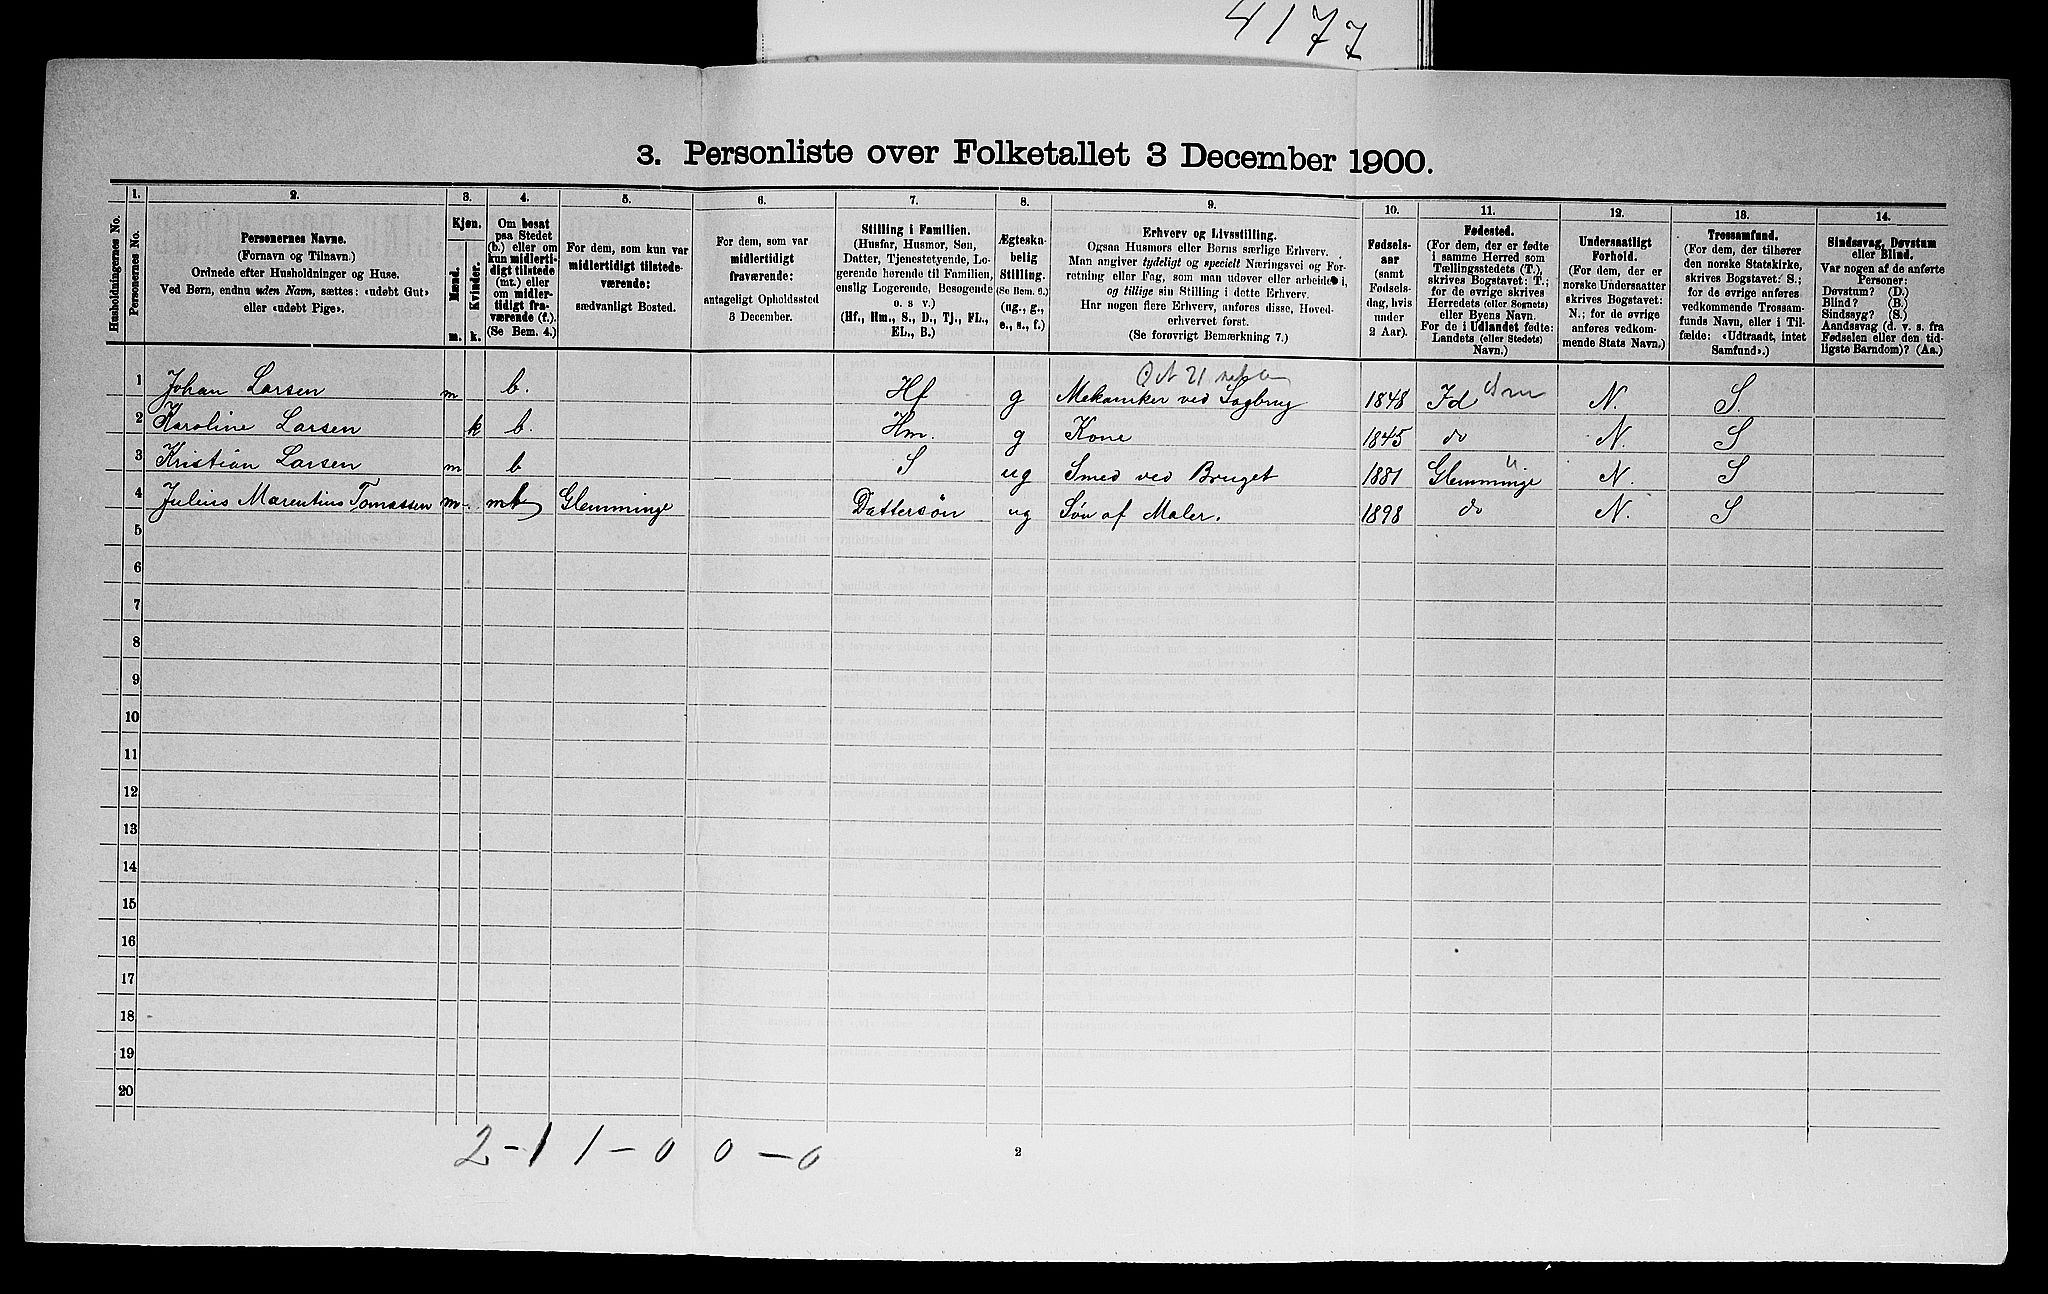 4177
3. Personliste over Folketallet 3 December 1900.
Husholdningernes No.
1.
Personernes No.
2.
Personernes Navne.
(Fornavn og Tilnavn.)
Ordnede efter Husholdninger og Huse.
Ved Børn, endnu uden Navn, sættes: «udøbt Gut»
eller «udøbt Pige».
3.
Kjøn.
Mænd.
Kvinder.
m. k.
4.
Om bosat
paa Stedet
(b.) eller om
kun midlertidigt
tilstede
(mt.) eller
om midlertidigt
fraværende
(f.).
(Se Bem. 4.)
5.
For dem, som kun var
midlertidigt tilstedeværende:
sædvanligt Bosted.
6.
For dem, som var
midlertidigt
fraværende:
antageligt Opholdssted
3 December.
7.
Stilling i Familien.
(Husfar, Husmor, Søn,
Datter, Tjenestetyende, Logerende
hørende til Familien,
enslig Logerende, Besøgende
o. s v.)
(Hf., Hm., S., D., Tj., FL.,
EL., B.)
8.
Ægteskabelig
Stilling.
(Se Bem. 6.)
(ug., g.,
e., s., f.)
9.
Erhverv og Livsstilling.
Ogsaa Husmors eller Børns særlige Erhverv.
Man angiver tydeligt og specielt Næringsvei og Forretning
eller Fag, som man udøver eller arbeider i,
og tillige sin Stilling i dette Erhverv.
Har nogen flere Erhverv, anføres disse, Hovederhvervet
først.
(Se forøvrigt Bemærkning 7.)
10.
Fødselsaar
(samt
Fødselsdag,
hvis
under
2 Aar).
11.
Fødested.
(For dem, der er fødte
i samme Herred som
Tællingsstedets (T.),
skrives Bogstavet: T.;
for de øvrige skrives
Herredets (eller Sognets)
eller Byens Navn.
For de i Udlandet fødte:
Landets (eller Stedets)
Navn.)
12.
Undersaatligt
Forhold.
(For dem, der er
norske Undersaatter
skrives Bogstavet:
N.; for de øvrige
anføres vedkommende
Stats Navn.)
13.
Trossamfund.
(For dem, der tilhører
den norske Statskirke,
skrives Bogstavet: S.;
for de øvrige anføres
vedkommende Trossamfunds
Navn, eller i Tilfælde:
«Udtraadt, intet
Samfund».)
14.
Sindssvag, Døvstum
eller Blind.
Var nogen af de anførte
Personer:
Døvstum? (D.)
Blind? (B.)
Sindssyg? (S.)
Aandssvag (d. v. s. fra
Fødselen eller den tidligste
Barndom)? (Aa.)
1 Johan Larsen m b. Hf g Mekaniker ved Sagbrug 1848 Id N. S.
2 Karoline Larsen k b. Hm. g Kone 1845 do N. S
3 Kristian Larsen m b S ug Smed ved Bruget 1881 Glemminge N. S
4 Julius Marentius Tomassen m mt Glemminge Dattersøn ug Søn af Maler. 1898 do N. S
5
6
7
8
9
10
11
12
13
14
15
16
17
18
19
20
2-1 1-0 0-0
2